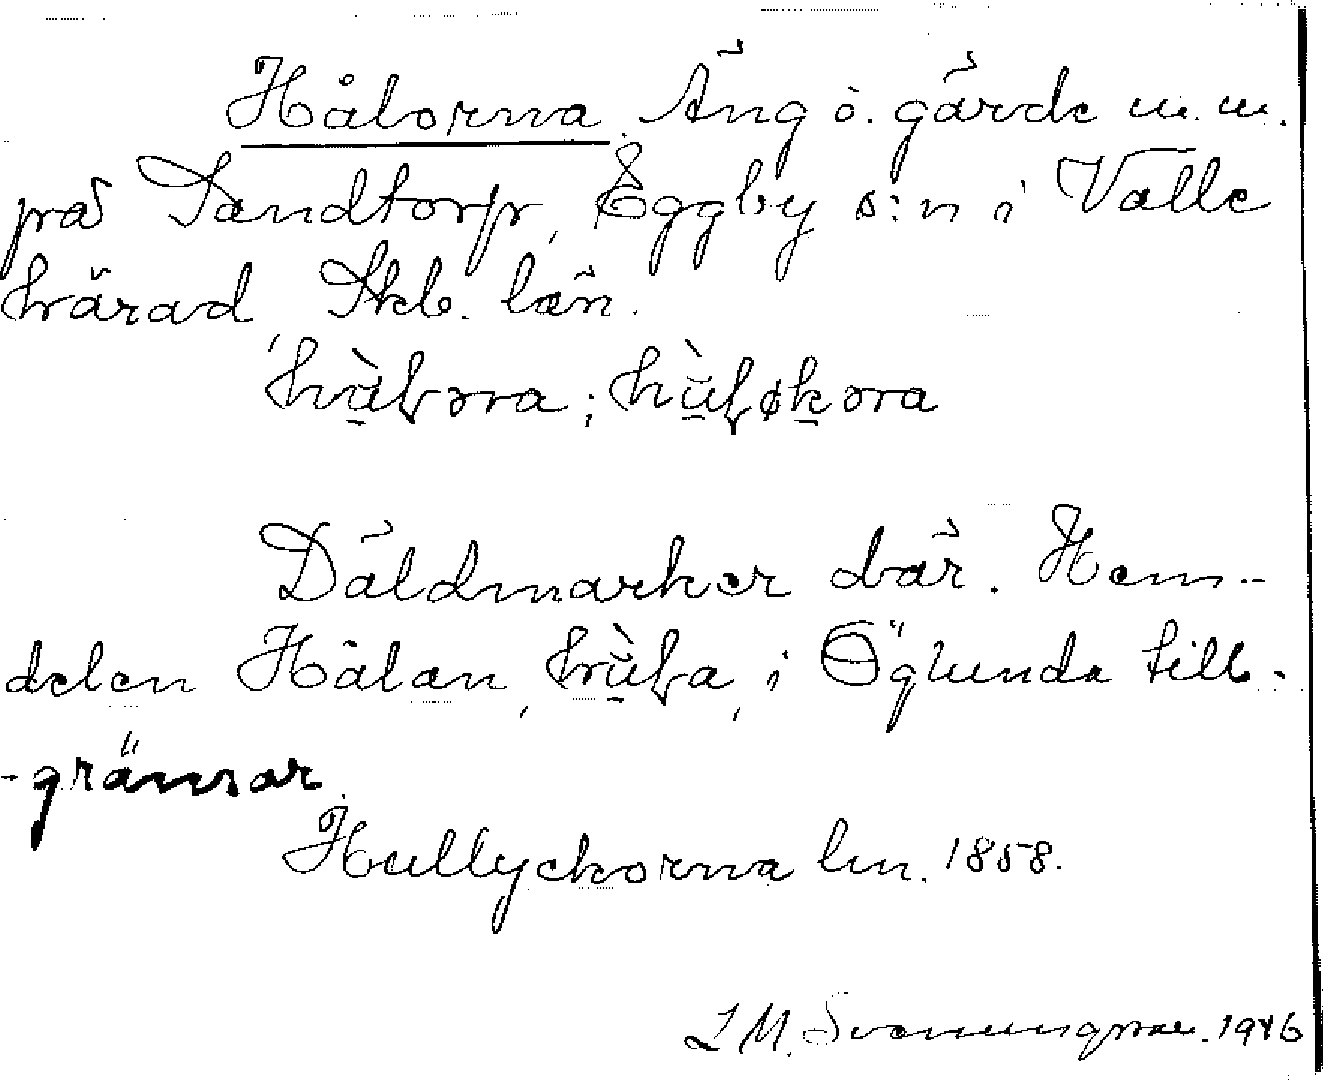 Hålorna. Äng o. gärde m. m.
på Sandtorp, Eggby s:n i Valle
härad, Skb. län.
Däldmarker där. Hem-
delen Hålan, i Öglunda till-
-gränsar.
Hullyckorna lm. 1858.
L M. Svenungsson. 1946